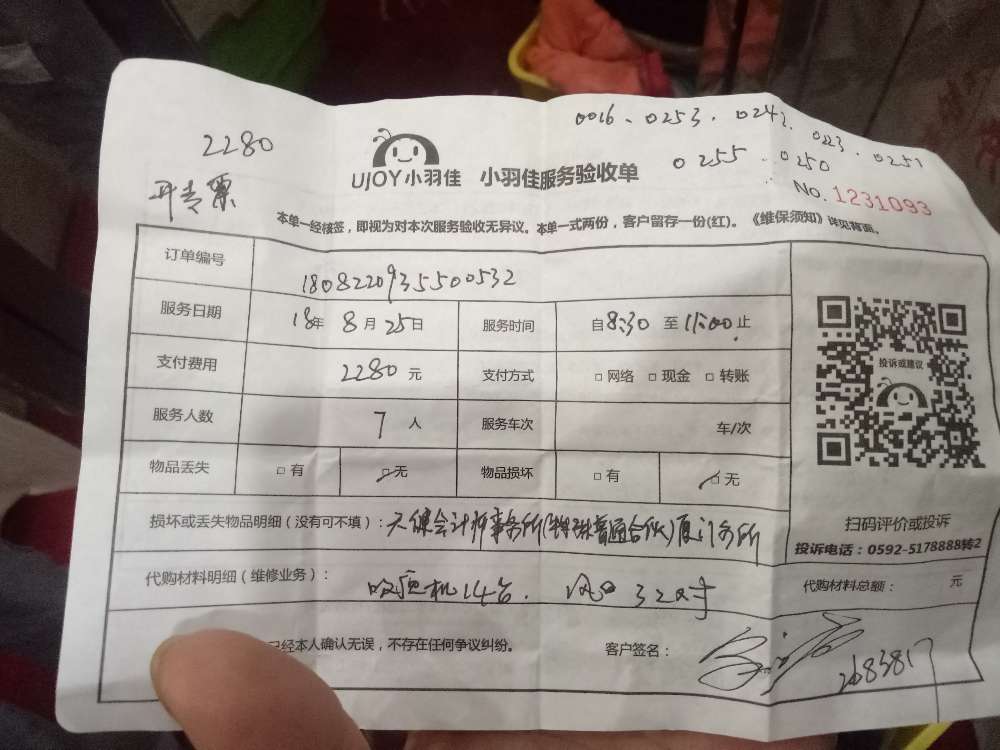 0016、0253、0242、0223、0251
2280
0255、0250
开专票
UJOY小羽佳 小羽佳服务验收单
No. 1231093
本单一经核签，即视为对本次服务验收无异议。本单一式两份，客户留存一份(红)。《维保须知》详见背面。
订单编号 1808220935500532
服务日期 18年 8月 25日 服务时间 自8:30 至 11:00止
支付费用 2280 元 支付方式 □网络 □现金 □转账
投诉或建议
服务人数 7 人 服务车次 车/次
物品丢失 □有 □无 物品损坏 □有 □无
损坏或丢失物品明细（没有可不填）：天健会计师事务所(特殊普通合伙)厦门分所
扫码评价或投诉
投诉电话：0592-5178888转2
代购材料明细（维修业务）： 机14台. 风口32对
代购材料总额： 元
已经本人确认无误，不存在任何争议纠纷。 客户签名：
2683817